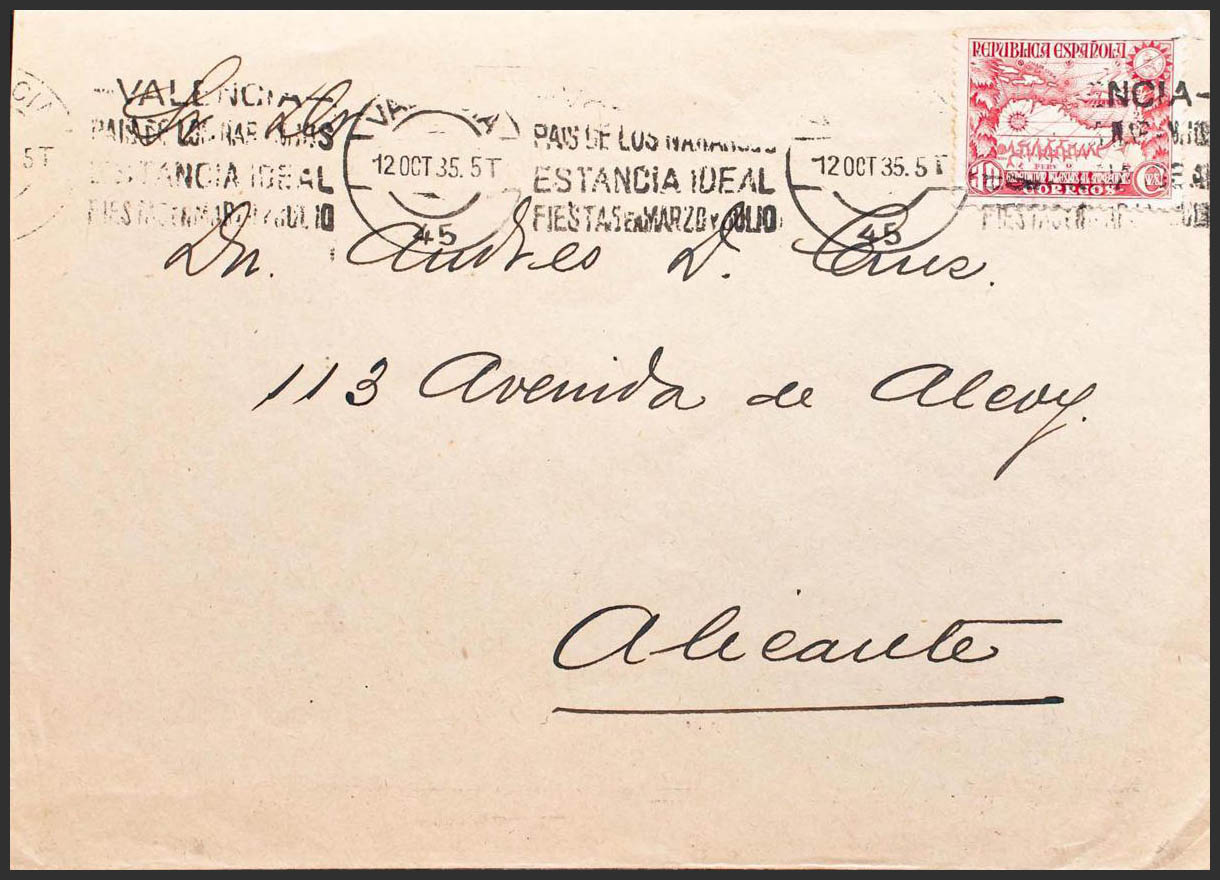 REPUBLICA ESPAÑOLA
VALENCIA
PAIS DE LOS NARANJOS
ESTANCIA IDEAL
FIESTAS EN MARZO Y JULIO
5T
12 OCT 35. 5T
45
PAIS DE LOS NARANJOS
ESTANCIA IDEAL
FIESTAS EN MARZO Y JULIO
12 OCT 35. 5T
45
NCIA
10 CTS
CORREOS
Sr. Dn.
Dn. Andres D. Cruz.
113 Avenida de Alcoy.
Alicante